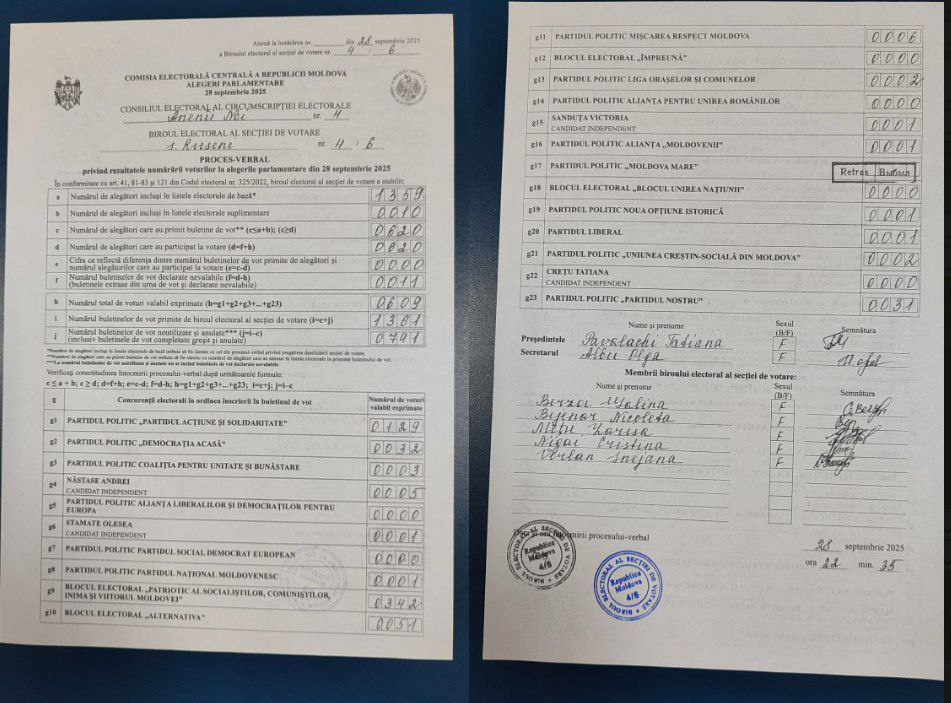 Anexă la hotărârea nr. din 28 septembrie 2025
a Biroului electoral al secției de votare nr. 4 / 6
COMISIA ELECTORALĂ CENTRALĂ A REPUBLICII MOLDOVA
ALEGERI PARLAMENTARE
28 septembrie 2025
CONSILIUL ELECTORAL AL CIRCUMSCRIPȚIEI ELECTORALE
Anenii Noi nr. 4
BIROUL ELECTORAL AL SECȚIEI DE VOTARE
s. Ruseni nr. 4 / 6
PROCES-VERBAL
privind rezultatele numărării voturilor la alegerile parlamentare din 28 septembrie 2025
În conformitate cu art. 41, 81-83 și 121 din Codul electoral nr. 325/2022, biroul electoral al secției de votare a stabilit:
a Numărul de alegători incluși în listele electorale de bază* 1359
b Numărul de alegători incluși în listele electorale suplimentare 0010
c Numărul de alegători care au primit buletine de vot** (c≤a+b); (c≥d) 0620
d Numărul de alegători care au participat la votare (d=f+h) 0620
e Cifra ce reflectă diferența dintre numărul buletinelor de vot primite de alegători și
numărul alegătorilor care au participat la votare (e=c-d) 0000
f Numărul buletinelor de vot declarate nevalabile (f=d-h)
(buletinele extrase din urna de vot și declarate nevalabile) 0011
h Numărul total de voturi valabil exprimate (h=g1+g2+g3+...+g23) 0609
i Numărul buletinelor de vot primite de biroul electoral al secției de votare (i=c+j) 1361
j Numărul buletinelor de vot neutilizate și anulate*** (j=i-c)
(inclusiv buletinele de vot completate greșit și anulate) 0741
Verificați corectitudinea întocmirii procesului-verbal după următoarele formule:
c ≤ a + b; c ≥ d; d=f+h; e=c-d; f=d-h; h=g1+g2+g3+...+g23; i=c+j; j=i-c
g Concurenții electorali în ordinea înscrierii în buletinul de vot Numărul de voturi
valabil exprimate
g1 PARTIDUL POLITIC „PARTIDUL ACȚIUNE ȘI SOLIDARITATE” 0129
g2 PARTIDUL POLITIC „DEMOCRAȚIA ACASĂ” 0032
g3 PARTIDUL POLITIC COALIȚIA PENTRU UNITATE ȘI BUNĂSTARE 0003
g4 NĂSTASE ANDREI
CANDIDAT INDEPENDENT 0005
g5 PARTIDUL POLITIC ALIANȚA LIBERALILOR ȘI DEMOCRAȚILOR PENTRU
EUROPA 0000
g6 STAMATE OLESEA
CANDIDAT INDEPENDENT 0001
g7 PARTIDUL POLITIC PARTIDUL SOCIAL DEMOCRAT EUROPEAN 0000
g8 PARTIDUL POLITIC PARTIDUL NAȚIONAL MOLDOVENESC 0001
g9 BLOCUL ELECTORAL „PATRIOTIC AL SOCIALIȘTILOR, COMUNIȘTILOR,
INIMA ȘI VIITORUL MOLDOVEI” 0342
g10 BLOCUL ELECTORAL „ALTERNATIVA” 0051
g11 PARTIDUL POLITIC MIȘCAREA RESPECT MOLDOVA 0006
g12 BLOCUL ELECTORAL „ÎMPREUNĂ” 0000
g13 PARTIDUL POLITIC LIGA ORAȘELOR ȘI COMUNELOR 0002
g14 PARTIDUL POLITIC ALIANȚA PENTRU UNIREA ROMÂNILOR 0000
g15 SANDUȚA VICTORIA
CANDIDAT INDEPENDENT 0001
g16 PARTIDUL POLITIC ALIANȚA „MOLDOVENII” 0001
g17 PARTIDUL POLITIC „MOLDOVA MARE” Retras Выбыл
g18 BLOCUL ELECTORAL „BLOCUL UNIREA NAȚIUNII” 0000
g19 PARTIDUL POLITIC NOUA OPȚIUNE ISTORICĂ 0001
g20 PARTIDUL LIBERAL 0001
g21 PARTIDUL POLITIC „UNIUNEA CREȘTIN-SOCIALĂ DIN MOLDOVA” 0002
g22 CREȚU TATIANA
CANDIDAT INDEPENDENT 0000
g23 PARTIDUL POLITIC „PARTIDUL NOSTRU” 0031
Nume și prenume Sexul (B/F) Semnătura
Președintele Pavalachi Tatiana F
Secretarul Albu Olga F
Membrii biroului electoral al secției de votare:
Nume și prenume Sexul (B/F) Semnătura
Berzoi Galina F
Bejenor Nicoleta F
Larisa F
Nigai Cristina F
Verlan Snejana F
întocmirii procesului-verbal 28 septembrie 2025
ora 22 min. 35
BIROUL ELECTORAL AL SECȚIEI DE VOTARE
Republica
Moldova
4/6
BIROUL ELECTORAL AL SECȚIEI DE VOTARE
Republica
Moldova
4/6